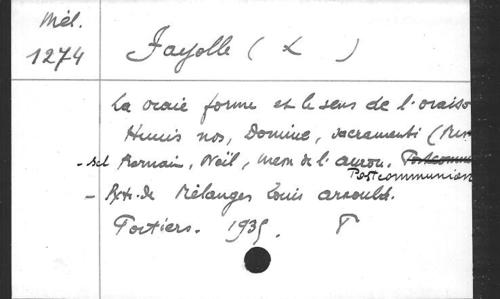 Mél.
1274
Fayolle ( L )
La vraie forme et le sens de l'oraiso
Hunis nos, Domine, sacramenti (Mis
Romain, Noël, messe de l'aurore. Postcommu
Postcommunion
- Extr. de Mélanges Louis Arnould.
Poitiers. 1935.